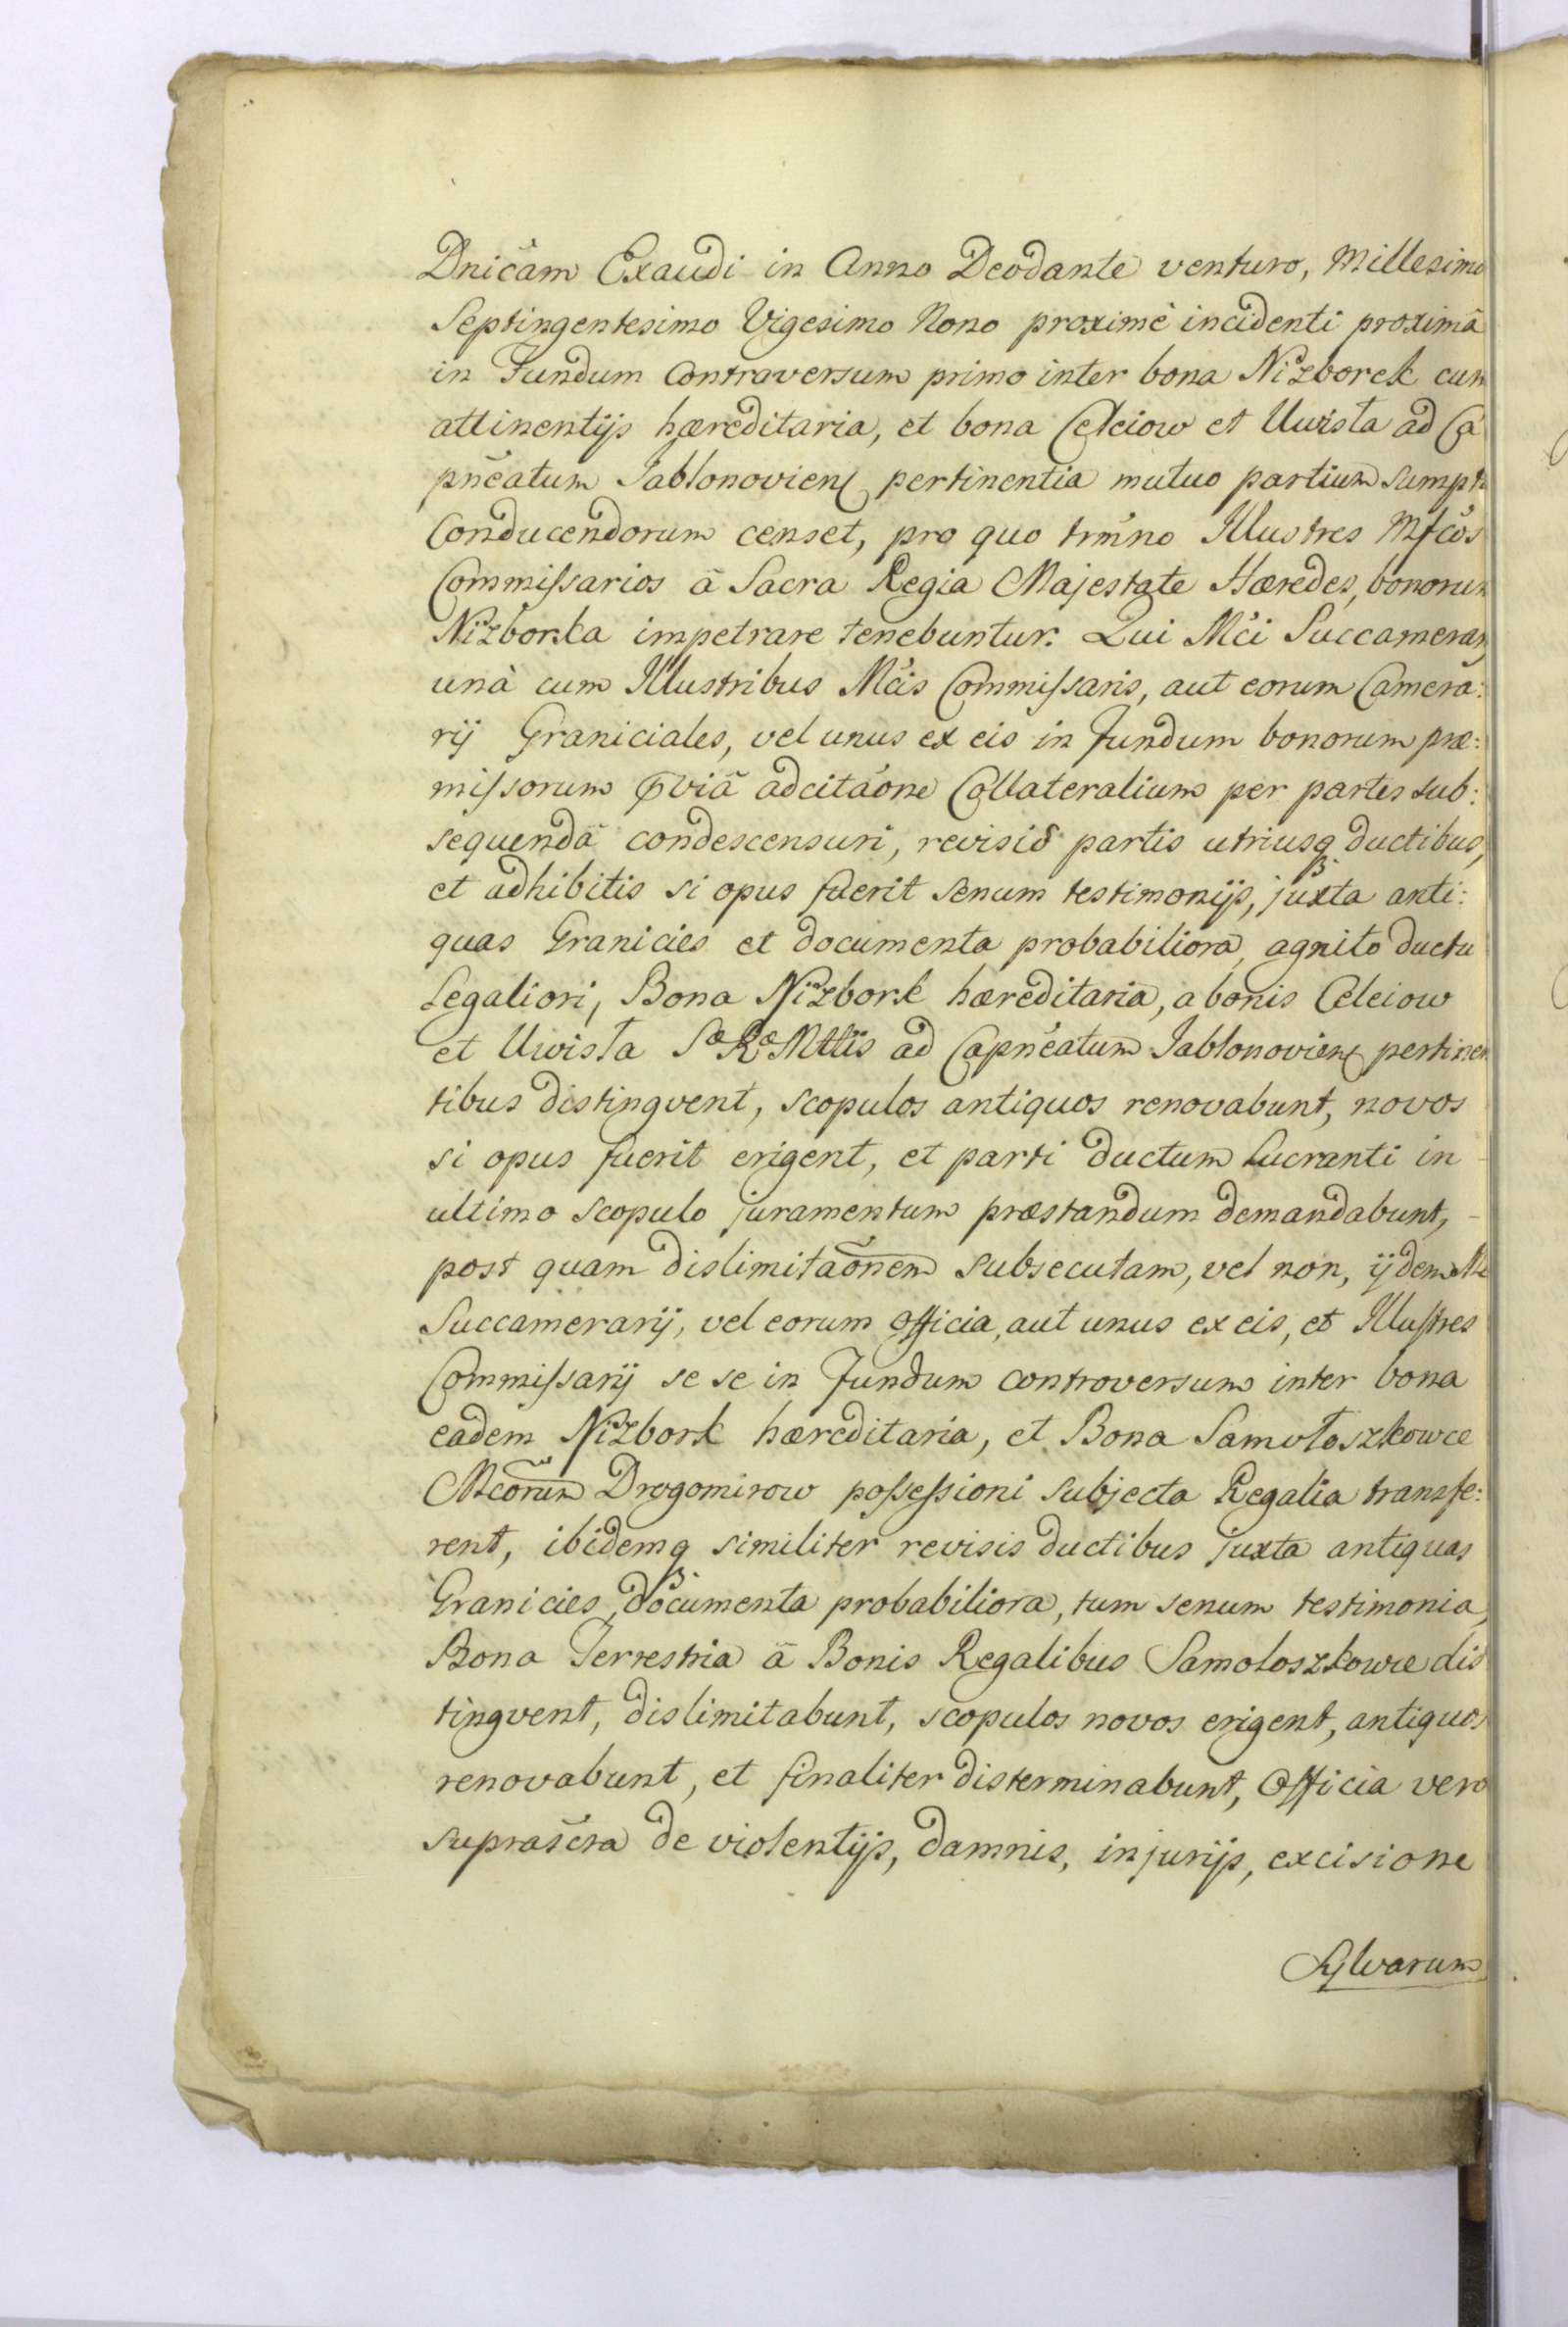 Dnicam Exaudi in Anno Deodante venturo, Millesimo
Septingentesimo Vigesimo Nono proximè incidenti proximâ
in Fundum Controversum primo inter bona Niżborek cum
attinentijs hæreditaria, et bona Celeiow et Uwisła ad Ca
pneatum Jablonovien pertinentia mutuo partium sumptu
Conducendorum censet, pro quo trmno Illustres Mfcos
Commissarios â Sacra Regia Majestate Hæredes, bonorum
Niżborka impetrare tenebuntur. Qui Mci Succamerarij
unà cum Illustribus Mcis Commissaris, aut eorum Camera:
rij Graniciales, vel unus ex eis in Fundum bonorum præ:
missorum pviâ adcitaone Collateralium per partes sub:
sequendâ condescensuri, revisis partis utriusq ductibus,
et adhibitis si opus fuerit senum testimonijs, juxta anti:
quas Granicies et documenta probabiliora, agnito ductu
Legaliori, Bona Niżbork hæreditaria, a bonis Celeiow
et Uwisła Sæ Ræ Mttis ad Capneatum Jablonovien pertinen
tibus distingvent, scopulos antiquos renovabunt, novos
si opus fuerit erigent, et parti ductum Lucranti in
ultimo scopulo juramentum præstandum demandabunt,
post quam dislimitaonem subsecutam, vel non, ijdem
Succamerarij, vel eorum Officia, aut unus ex eis, et Illustres
Commissarij se se in Fundum controversum inter bona
eadem Niżbork hæreditaria, et Bona Samołoszkowce
Mcorum Drogomirow possessioni subjecta Regalia transfe:
rent, ibidemq similiter revisis ductibus juxta antiquas
Granicies, documenta probabiliora, tum senum testimonia,
Bona Terrestria â Bonis Regalibus Samoloszkowce dis
tingvent, dislimitabunt, scopulos novos erigent, antiquos
renovabunt, et finaliter disterminabunt, Officia vero
suprascra de violentijs, damnis, injurijs, excisione
Sylvarum